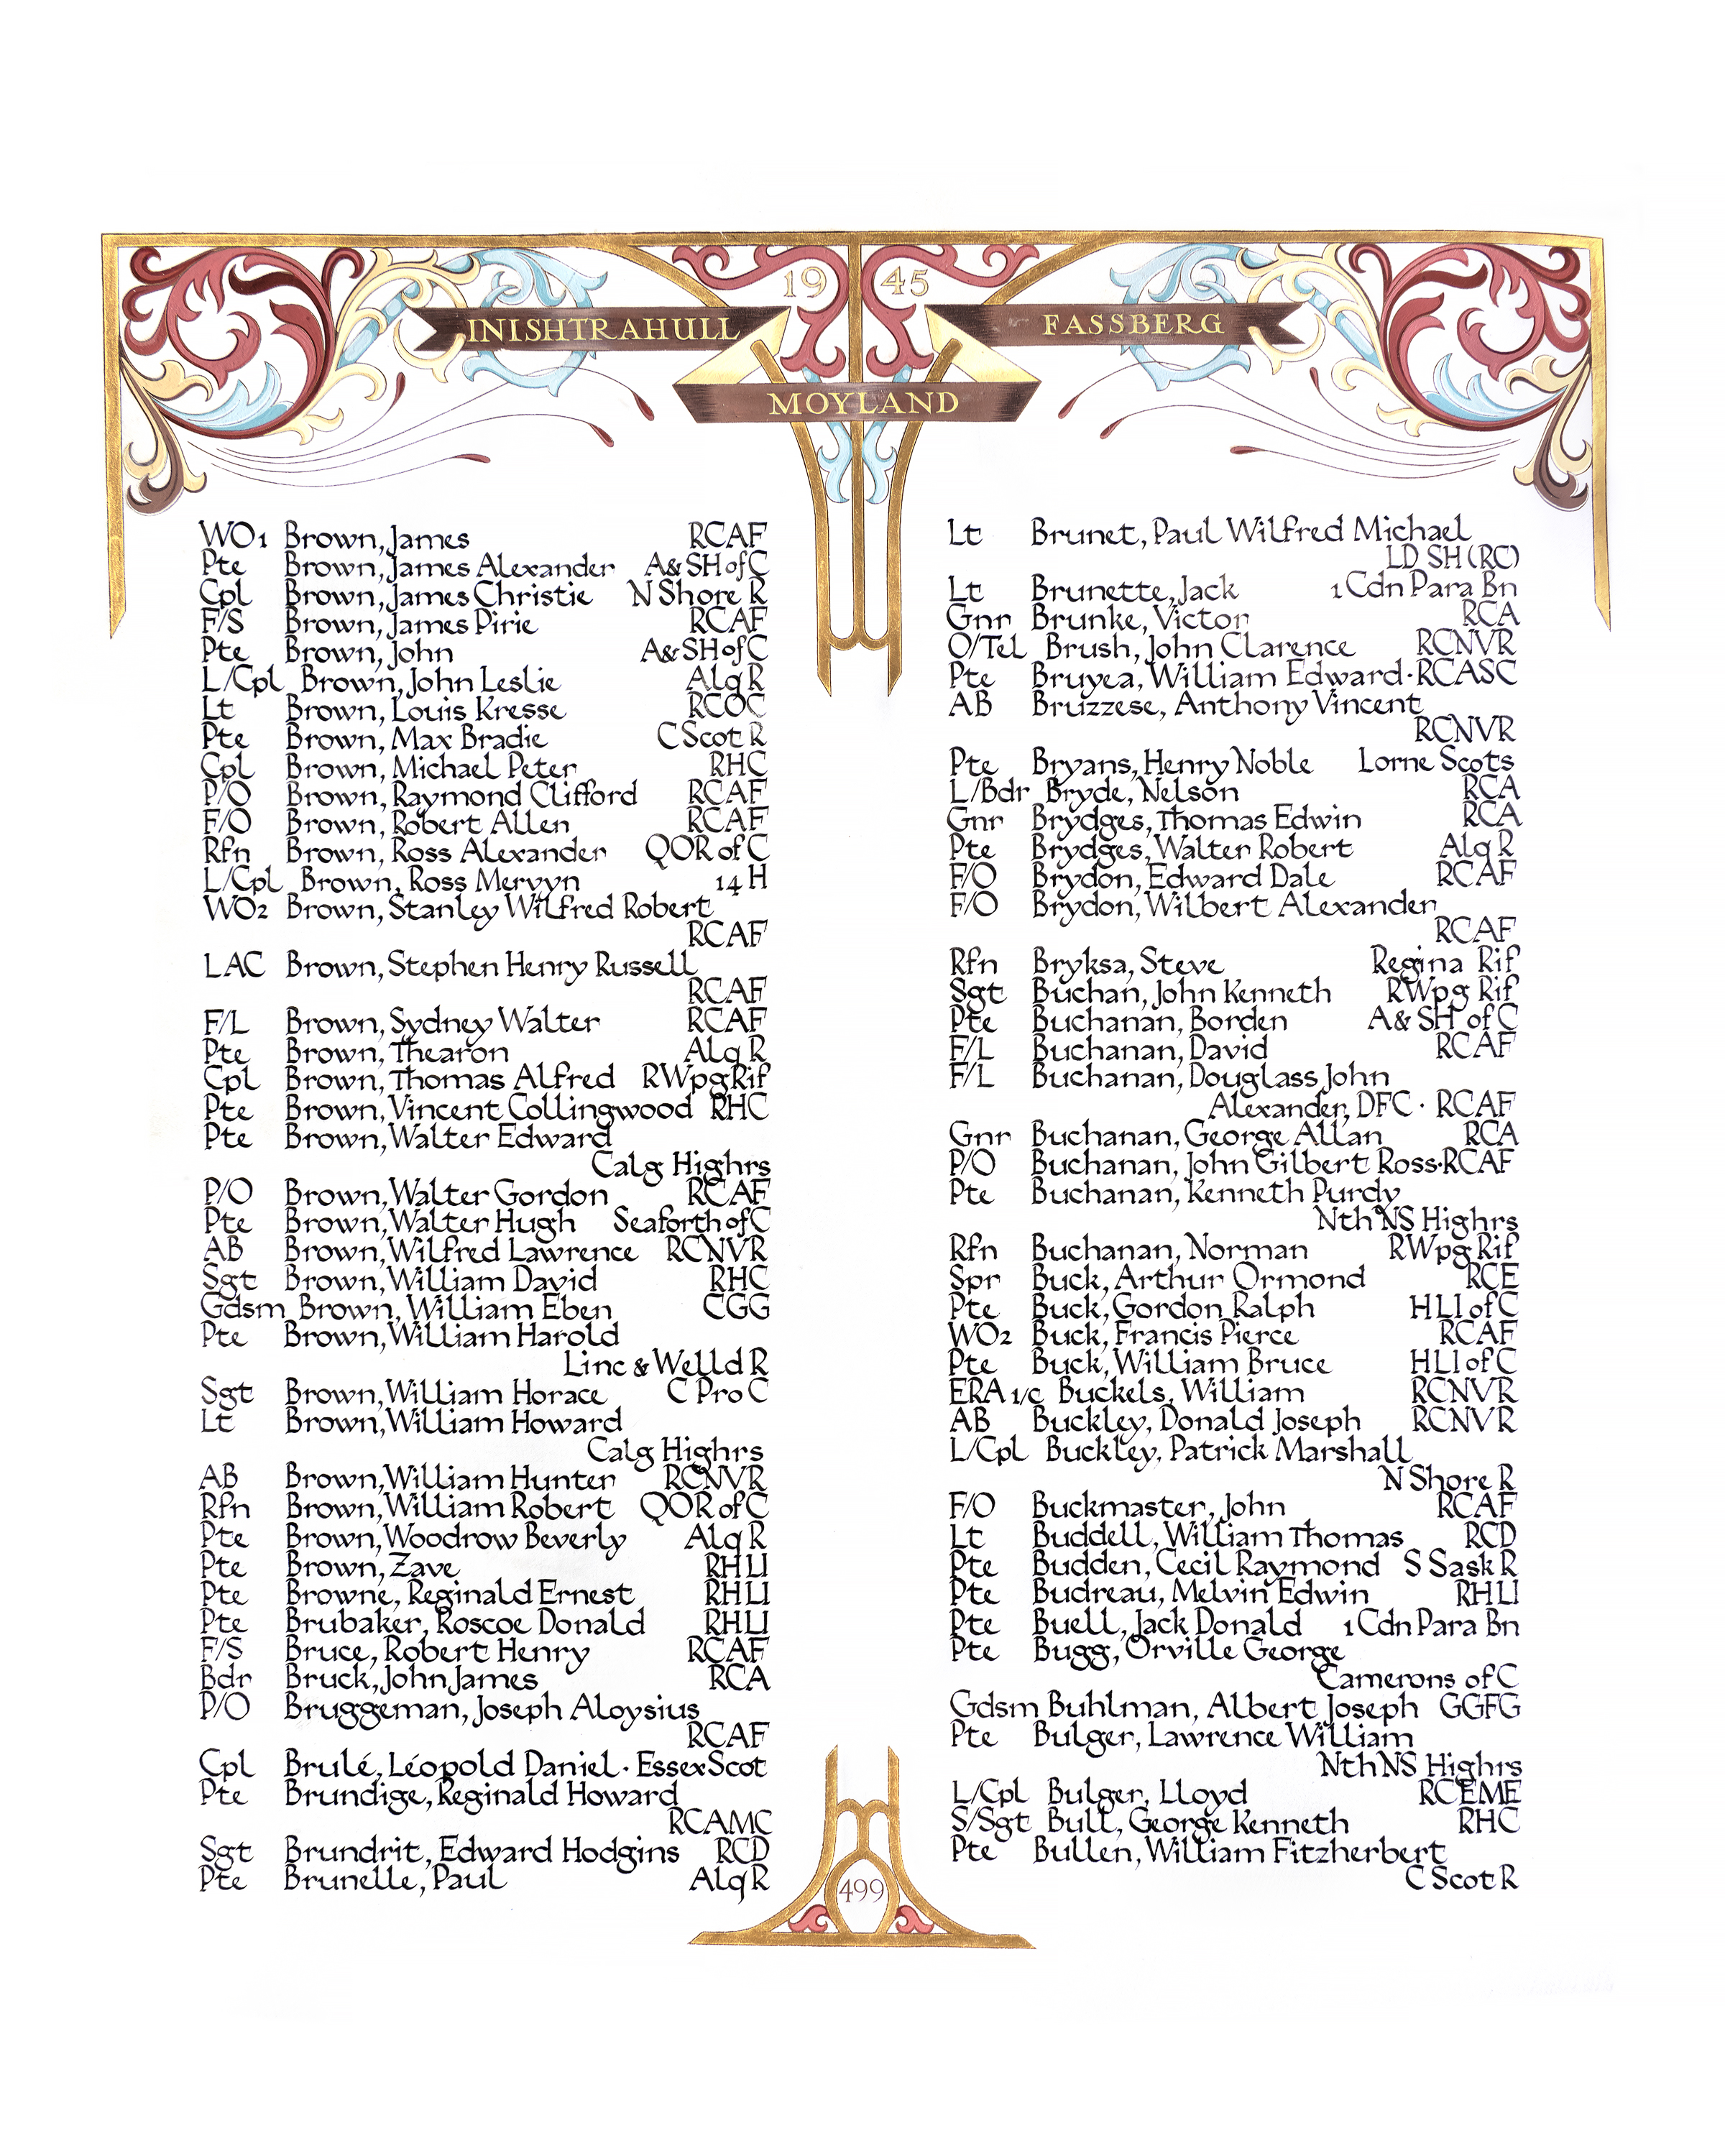 19 45
INISHTRAHULL
FASSBERG
MOYLAND
WO1 Brown, James RCAF
Pte Brown, James Alexander A & SH of C
Cpl Brown, James Christie N Shore R
F/S Brown, James Pirie RCAF
Pte Brown, John A & SH of C
L/Cpl Brown, John Leslie Alq R
Lt Brown, Louis Kresse RCOC
Pte Brown, Max Bradie C Scot R
Cpl Brown, Michael Peter RHC
P/O Brown, Raymond Clifford RCAF
F/O Brown, Robert Allen RCAF
Rfn Brown, Ross Alexander QOR of C
L/Cpl Brown, Ross Mervyn 14 H
WO2 Brown, Stanley Wilfred Robert
RCAF
LAC Brown, Stephen Henry Russell
RCAF
F/L Brown, Sydney Walter RCAF
Pte Brown, Thearon Alq R
Cpl Brown, Thomas Alfred RWpg Rif
Pte Brown, Vincent Collingwood RHC
Pte Brown, Walter Edward
Calg Highrs
P/O Brown, Walter Gordon RCAF
Pte Brown, Walter Hugh Seaforth of C
AB Brown, Wilfred Lawrence RCNVR
Sgt Brown, William David RHC
Gdsm Brown, William Eben CGG
Pte Brown, William Harold
Linc & Welld R
Sgt Brown, William Horace C Pro C
Lt Brown, William Howard
Calg Highrs
AB Brown, William Hunter RCNVR
Rfn Brown, William Robert QOR of C
Pte Brown, Woodrow Beverly Alq R
Pte Brown, Zave RHLI
Pte Browne, Reginald Ernest RHLI
Pte Brubaker, Roscoe Donald RHLI
F/S Bruce, Robert Henry RCAF
Bdr Bruck, John James RCA
P/O Bruggeman, Joseph Aloysius
RCAF
Cpl Brulé, Léopold Daniel · Essex Scot
Pte Brundige, Reginald Howard
RCAMC
Sgt Brundrit, Edward Hodgins RCD
Pte Brunelle, Paul Alq R
Lt Brunet, Paul Wilfred Michael
LD SH (RC)
Lt Brunette, Jack 1 Cdn Para Bn
Gnr Brunke, Victor RCA
O/Tel Brush, John Clarence RCNVR
Pte Bruyea, William Edward · RCASC
AB Bruzzese, Anthony Vincent
RCNVR
Pte Bryans, Henry Noble Lorne Scots
L/Bdr Bryde, Nelson RCA
Gnr Brydges, Thomas Edwin RCA
Pte Brydges, Walter Robert Alq R
F/O Brydon, Edward Dale RCAF
F/O Brydon, Wilbert Alexander
RCAF
Rfn Bryksa, Steve Regina Rif
Sgt Buchan, John Kenneth RWpg Rif
Pte Buchanan, Borden A & SH of C
F/L Buchanan, David RCAF
F/L Buchanan, Douglass John
Alexander, DFC · RCAF
Gnr Buchanan, George Allan RCA
P/O Buchanan, John Gilbert Ross · RCAF
Pte Buchanan, Kenneth Purdy
Nth NS Highrs
Rfn Buchanan, Norman RWpg Rif
Spr Buck, Arthur Ormond RCE
Pte Buck, Gordon Ralph HLI of C
WO2 Buck, Francis Pierce RCAF
Pte Buck, William Bruce HLI of C
ERA 1/c Buckels, William RCNVR
AB Buckley, Donald Joseph RCNVR
L/Cpl Buckley, Patrick Marshall
N Shore R
F/O Buckmaster, John RCAF
Lt Buddell, William Thomas RCD
Pte Budden, Cecil Raymond S Sask R
Pte Budreau, Melvin Edwin RHLI
Pte Buell, Jack Donald 1 Cdn Para Bn
Pte Bugg, Orville George
Camerons of C
Gdsm Buhlman, Albert Joseph GGFG
Pte Bulger, Lawrence William
Nth NS Highrs
L/Cpl Bulger, Lloyd RCEME
S/Sgt Bull, George Kenneth RHC
Pte Bullen, William Fitzherbert
C Scot R
499